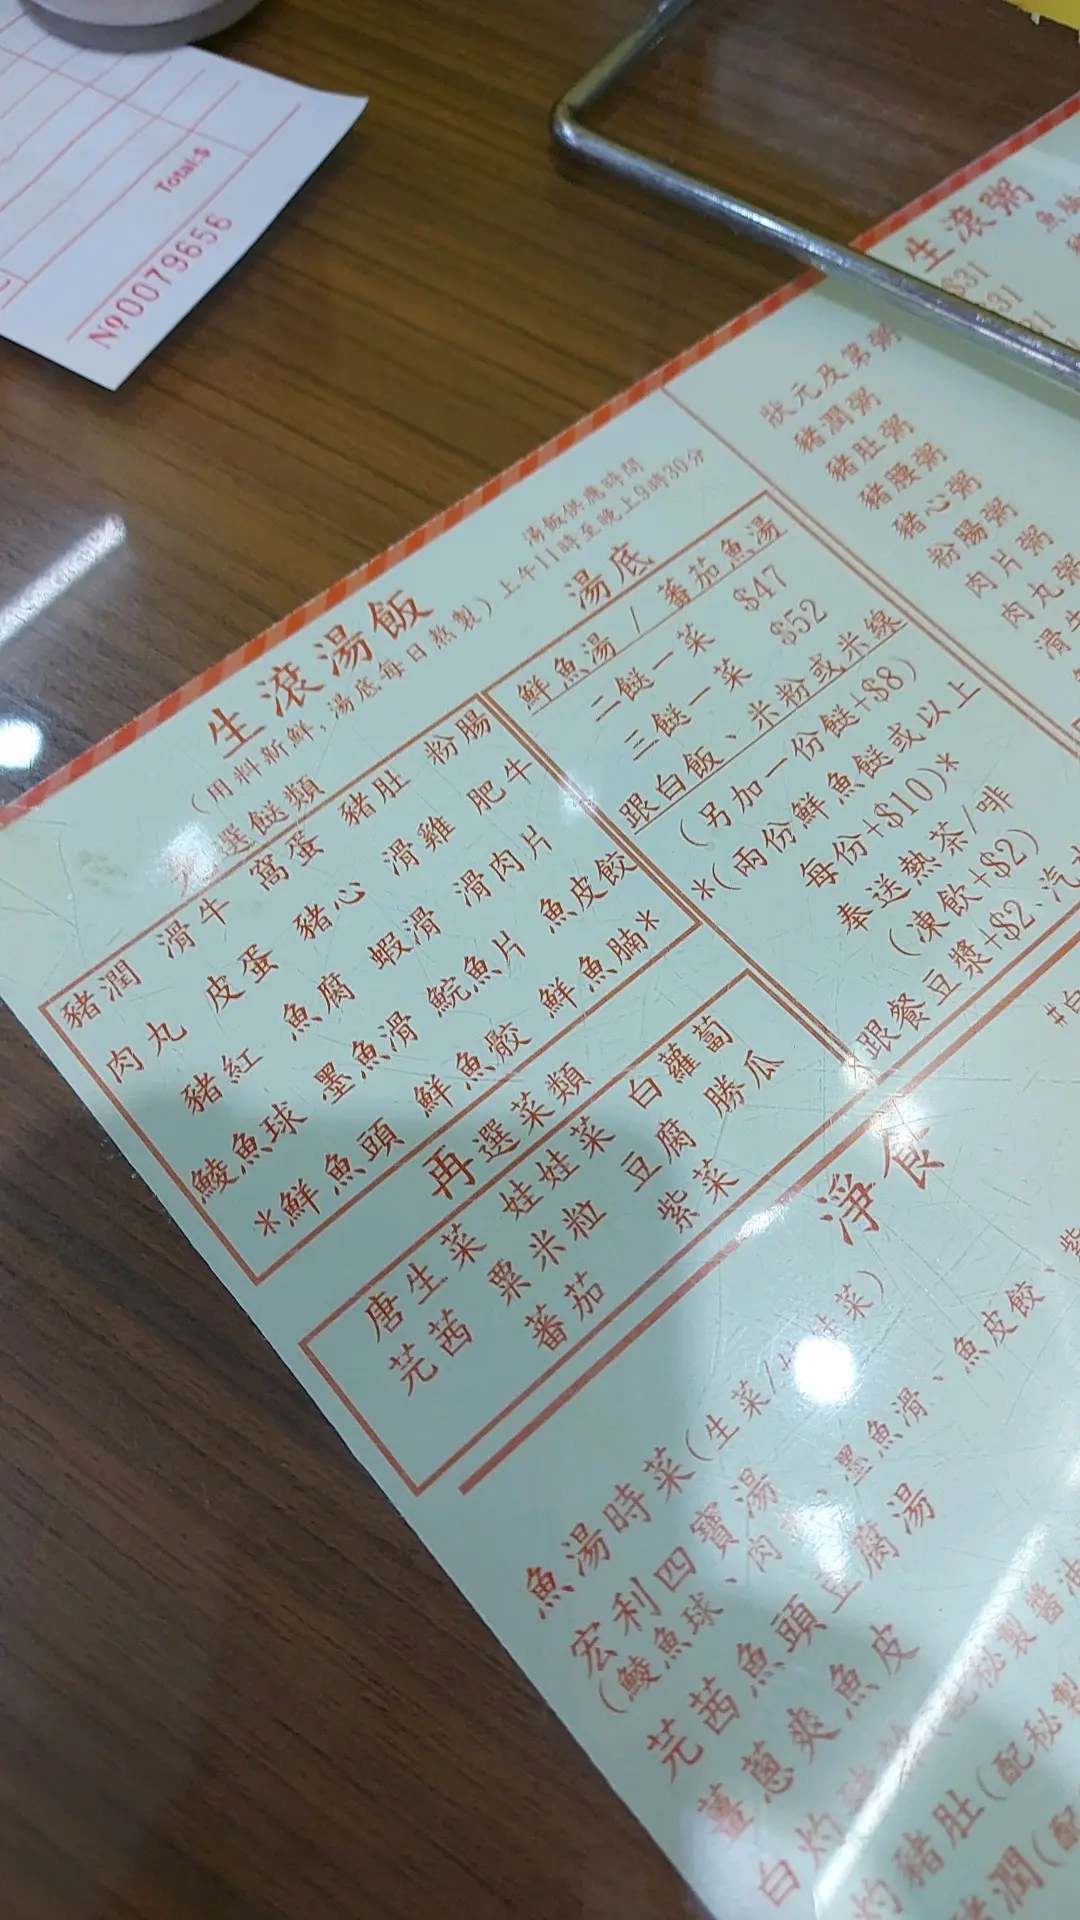 Total:$
No 0079656
生滾湯飯
(用料新鮮,湯底每日熬製)
湯飯供應時間
上午11時至晚上9時30分
選餸類
豬潤 滑牛 窩蛋 豬肚 粉腸
肉丸 皮蛋 豬心 滑雞 肥牛
豬紅 魚腐 蝦滑 滑肉片
鯪魚球 墨魚滑 鯇魚片 魚皮餃
*鮮魚頭 鮮魚骹 鮮魚腩*
再選菜類
唐生菜 娃娃菜 白蘿蔔
芫茜 粟米粒 豆腐 勝瓜
蕃茄 紫菜
湯底
鮮魚湯 / 蕃茄魚湯
二餸一菜 $47
三餸一菜 $52
跟白飯、米粉或米線
(另加一份餸+$8)
*(兩份鮮魚餸或以上
每份+$10)*
奉送熱茶/啡
(凍飲+$2)
跟餐豆漿+$2、汽
生滾粥
$31
狀元及第粥
豬潤粥
豬肚粥
豬腰粥
豬心粥
粉腸粥
肉片粥
肉丸粥
滑
淨食
魚湯時菜(生菜/
宏利四寶湯
(鯪魚球、肉 、墨魚滑、魚皮餃、
芫茜魚頭豆腐湯
薑蔥爽魚皮
白灼
秘製醬油
灼豬肚(配秘製
豬潤(配